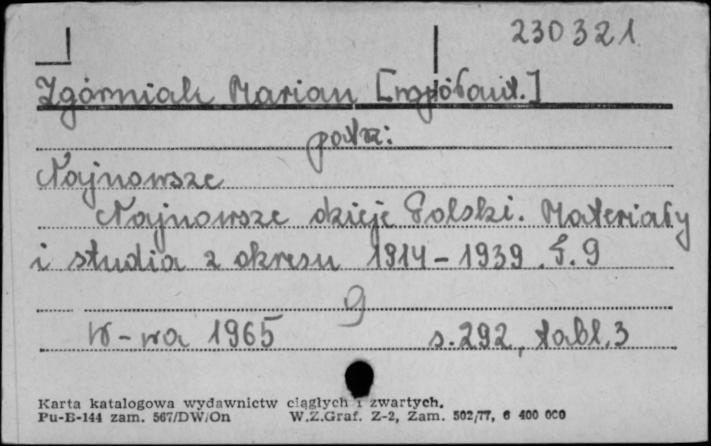 230321
Zgórniak Marian [współaut.]
patrz:
Najnowsze
Najnowsze dzieje Polski. Materiały
i studia z okresu 1914-1939. T. 9
9
W-wa 1965 s. 292, tabl. 3
Karta katalogowa wydawnictw ciągłych i zwartych.
Pu-B-144 zam. 567/DW/On W.Z.Graf. Z-2, Zam. 502/77, 6 400 000